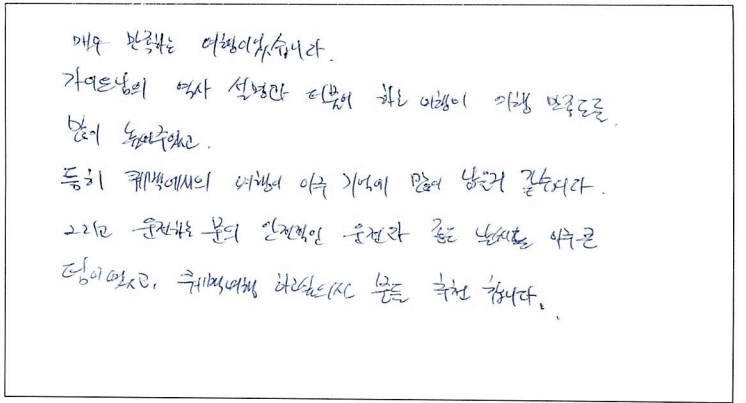 매우 만족하는 여행이었습니다.
가이드님의 역사 설명과 더불어 하는 여행이 여행 만족도를
많이 높여주었고.
특히 퀘백에서의 여행이 아주 기억에 많이 남을거 같습니다.
그리고 운전하는 분의 안전적인 운전과 좋은 날씨는 아주 큰
덤이였고, 퀘백여행 하고싶으신 분들 추천 합니다.